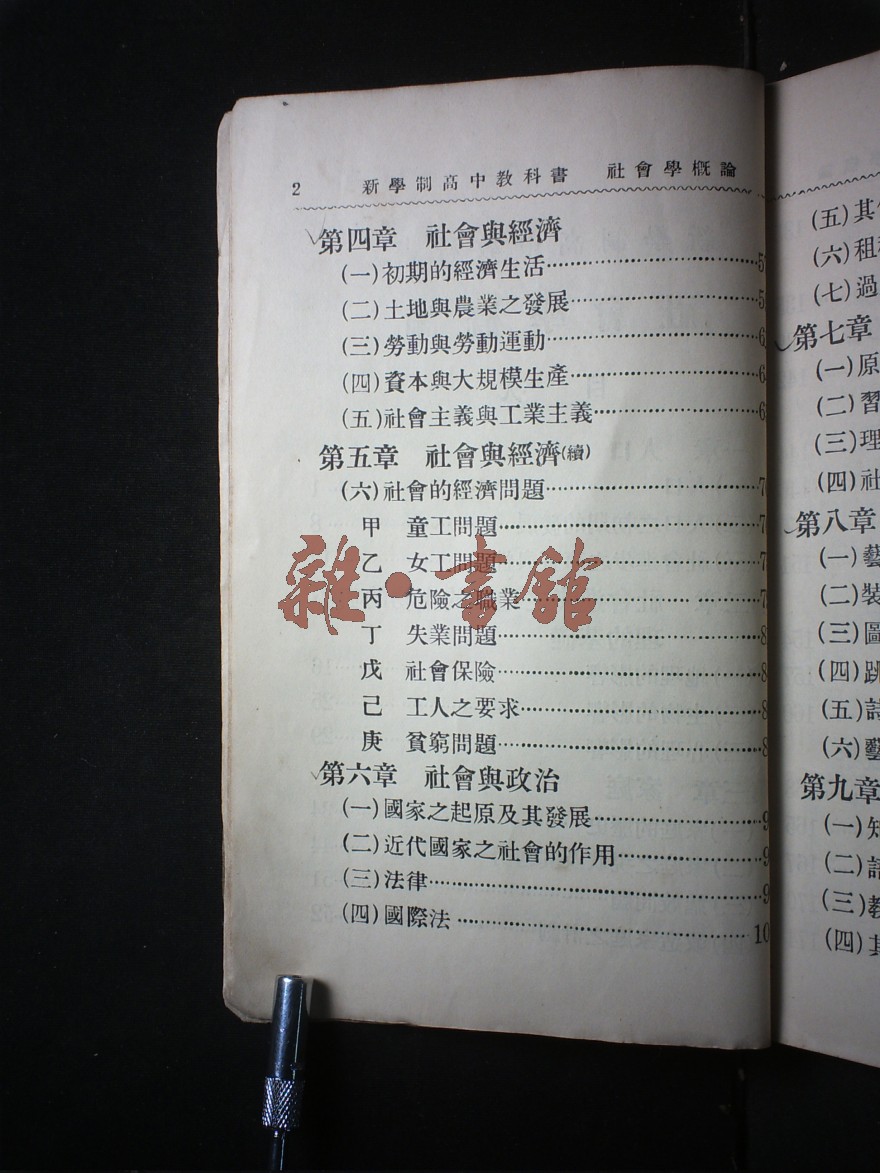 2 新學制高中教科書 社會學概論
第四章 社會與經濟
(一)初期的經濟生活……5
(二)土地與農業之發展……5
(三)勞動與勞動運動……6
(四)資本與大規模生產……6
(五)社會主義與工業主義……6
第五章 社會與經濟(續)
(六)社會的經濟問題……7
甲 童工問題……7
乙 女工問題……7
丙 危險之職業……7
丁 失業問題……8
戊 社會保險……8
己 工人之要求……8
庚 貧窮問題……8
第六章 社會與政治
(一)國家之起原及其發展……9
(二)近代國家之社會的作用……9
(三)法律……9
(四)國際法……10
雜·書館
(五)其
(六)租
(七)過
第七章
(一)原
(二)習
(三)理
(四)社
第八章
(一)藝
(二)裝
(三)圖
(四)跳
(五)詩
(六)藝
第九章
(一)知
(二)
(三)教
(四)其